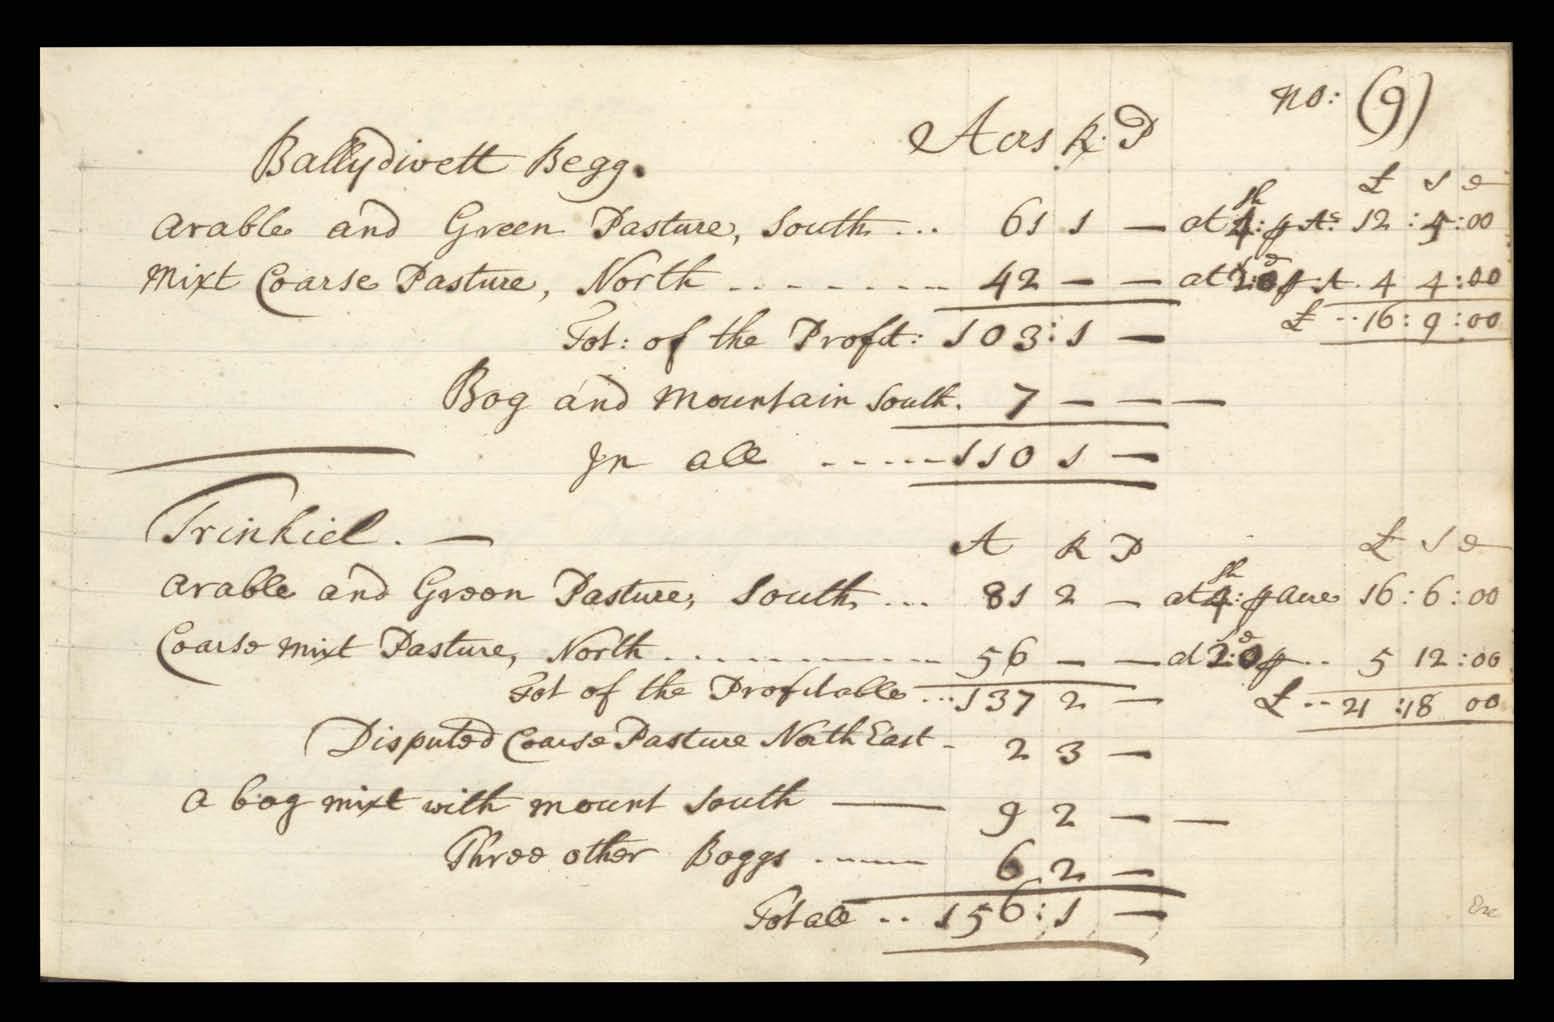 no: (9)
Acrs R: P
Ballydivett Begg.
£ s d
Arable and Green Pasture, South ... 61 1 — at 4:sh p Ac: 12 : 5 : 00
Mixt Coarse Pasture, North - - - - - - - 42 — — at 2:0d p A. 4 4 : 00
Tot: of the Profit: 103 : 1 — £ -- 16 : 9 : 00
Bog and Mountain South. 7 — — —
In all - - - - - 110 1 —
Trinkiel. —
A R P £ s d
Arable and Green Pasture, South ... 81 2 — at 4:sh p acre 16 : 6 : 00
Coarse mixt Pasture, North - - - - - - - 56 — — at 2:0d p -- 5 12 : 00
Tot of the Profitable ... 137 2 — £ -- 21 : 18 00
Disputed Coarse Pasture North East - 2 3 —
a bog mixt with mount South — 9 2 — —
Three other Boggs - - - - - 6 2 —
Totall -- 156 : 1 —